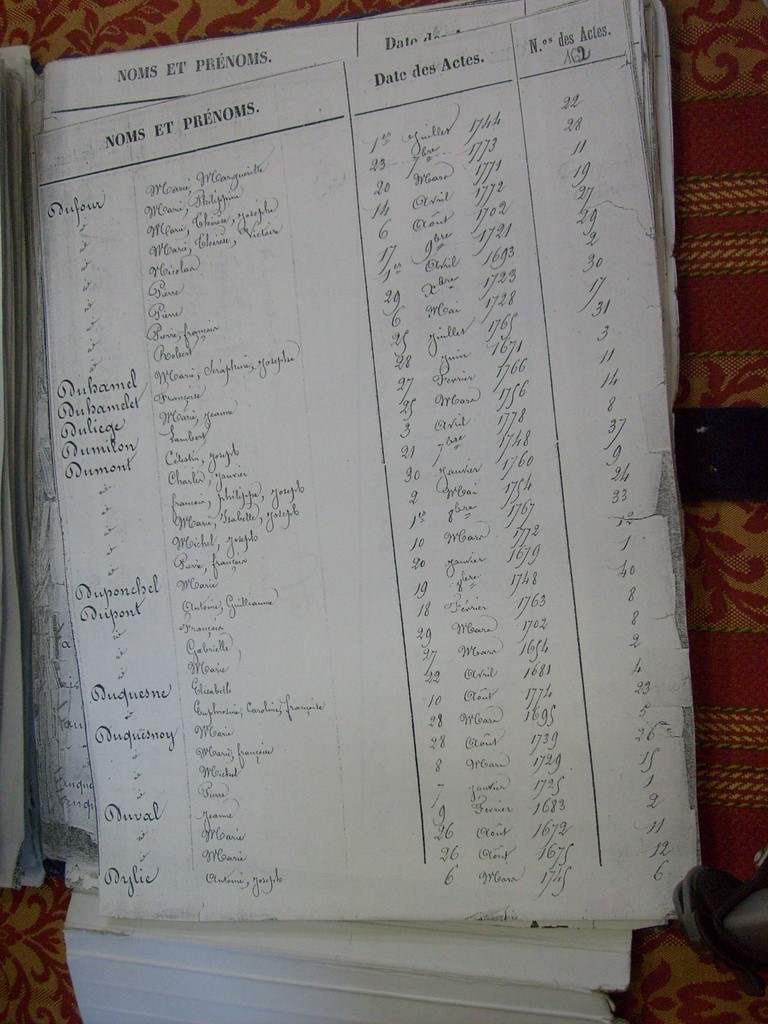 NOMS ET PRÉNOMS. Date des Actes.
NOMS ET PRÉNOMS. Date des Actes. N.os des Actes.
Dufour Marie, Marguerite 1er Juillet 1744 22
d° Marie, Philippine 23 7bre 1773 28
d° Marie, Thérèse, Josephe 20 Mars 1771 11
d° Marie, Thérèse, Victoire 14 Avril 1772 19
d° Nicolas 6 Août 1702 27
d° Pierre 17 9bre 1721 29
d° Pierre 1er Avril 1693 2
d° Pierre, françois 29 Xbre 1723 30
d° Robert 6 Mai 1728 17
Duhamel Marie, Séraphine, Josephe 25 Juillet 1765 31
Duhamelet Françoise 28 Juin 1671 3
Duliege Marie, Jeanne 27 Février 1766 11
Dumilon Lambert 25 Mars 1756 14
Dumont Célestin, Joseph 3 Avril 1778 8
d° Charles, Janvier 21 7bre 1748 37
d° françois, philippe, Joseph 30 Janvier 1760 9
d° Marie, Isabelle, Joseph 2 Mai 1754 24
d° Michel, Joseph 1er 8bre 1767 33
d° Pierre, françois 10 Mars 1772 12
Duponchel Marie 20 Janvier 1679 1
Dupont Antoine, Guillaume 19 8bre 1748 40
d° François 18 Février 1763 8
d° Gabrielle 29 Mars 1702 8
d° Marie 27 Mars 1654 2
Duquesne Elisabeth 22 Avril 1681 4
d° Euphrosine, Caroline, françoise 10 Août 1774 23
Duquesnoy Marie 28 Mars 1695 5
d° Marie, françoise 28 Août 1739 26
d° Michel 8 Mars 1729 15
d° Pierre 7 Janvier 1725 1
Duval Jeanne 9 Février 1683 2
d° Marie 26 Août 1672 11
d° Marie 26 Août 1675 12
Dylie Antoine, Joseph 6 Mars 1745 6